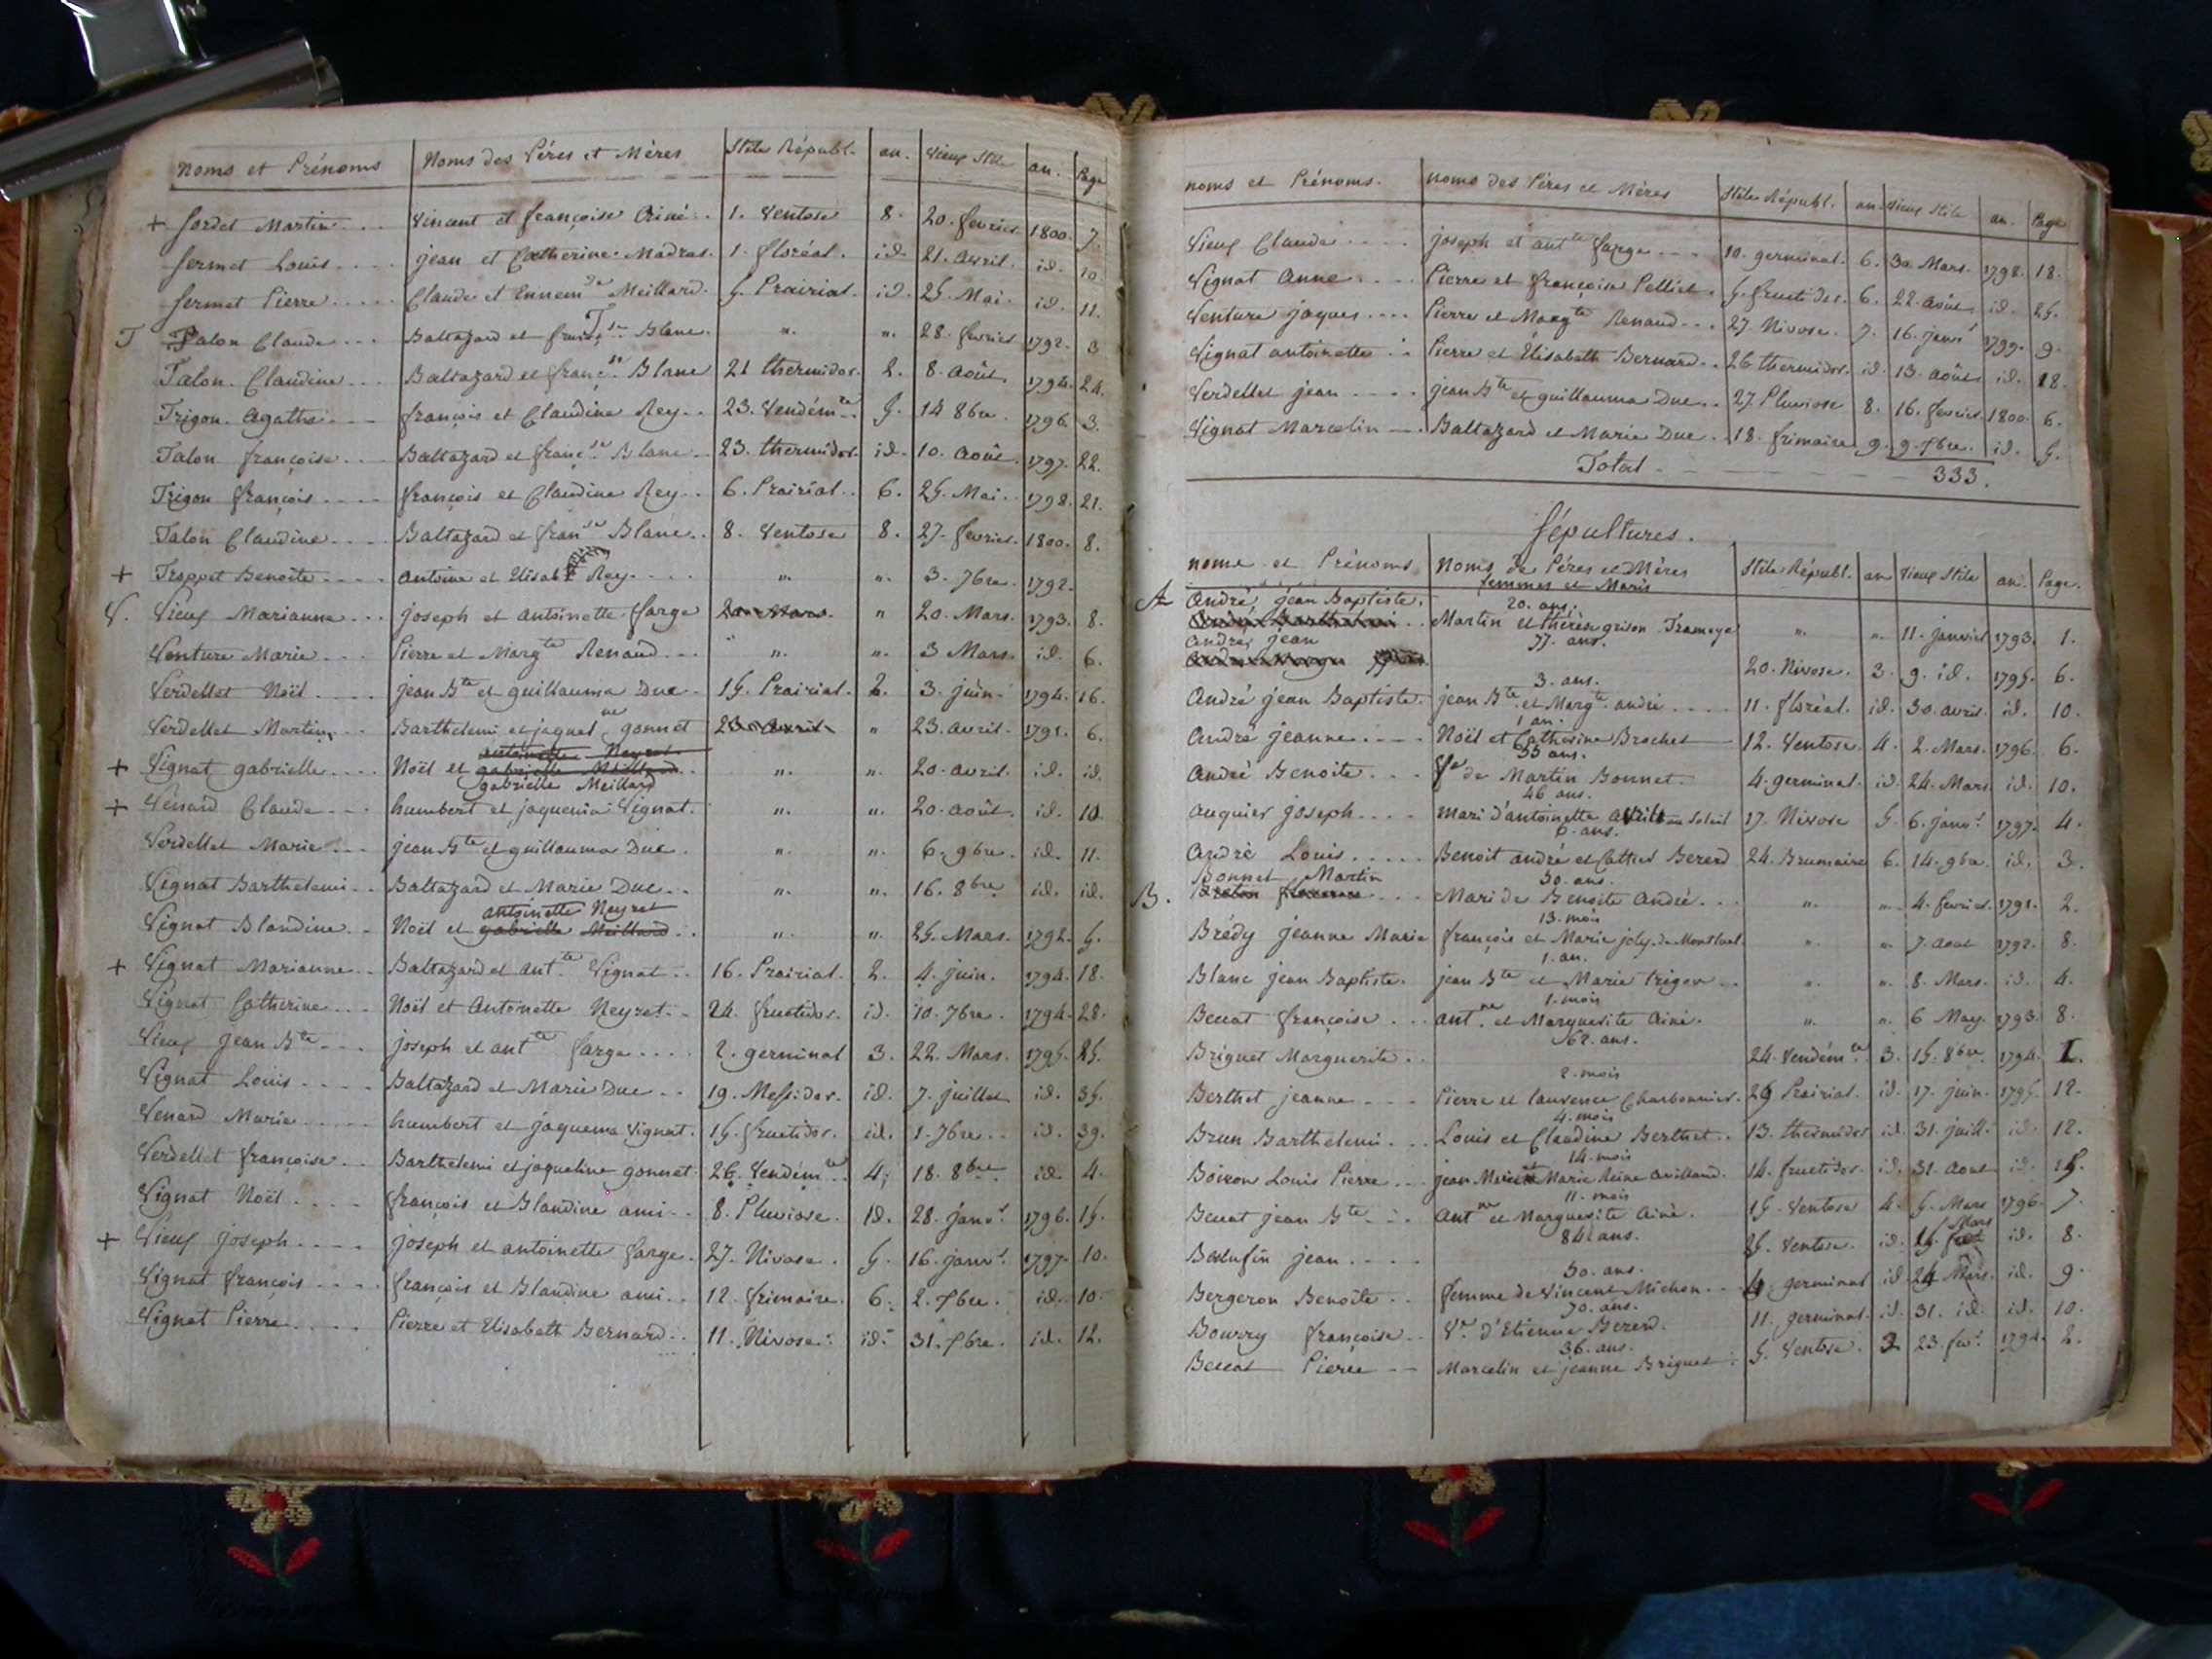 Noms et Prénoms Noms des Péres et Mères Stile Républ. an. Vieux Stile an. Page
+ Sordet Martin Vincent et françoise Ainé 1. Ventose 8. 20. fevrier 1800. 7.
Sermet Louis jean et Catherine Madras. 1. floréal. id. 21. avril. id. 10.
Sermet Pierre Claude et Ennemde Meillard. 5. Prairial. id. 25. Mai. id. 11.
T Talon Claude Baltazard et Blanc. ". ". 28. fevrier 1792. 3
Talon Claudine Baltazard et françse Blanc 21 thermidor. 2. 8. août 1794. 24.
Trigon agathe françois et Claudine Rey 23. Vendémre 5. 14 8bre 1796. 3.
Talon françoise Baltazard et françse Blanc 23. thermidor. id. 10. août. 1797. 22.
Trigon françois françois et Claudine Rey 6. Prairial. 6. 25. Mai. 1798. 21.
Talon Claudine Baltazard et franse Blanc 8. Ventose 8. 27. fevrier. 1800. 8.
+ Troppet Benoite antoine et Elisab Rey ". ". 3. 7bre. 1792.
V. Vieux Marianne joseph et antoinette farge 20 Mars. " 20. Mars. 1793. 8.
Venture Marie Pierre et Margte Renaud ". ". 3 Mars. id. 6.
Verdellet Noël jean Bte et guillauma Duc 15. Prairial. 2. 3. juin 1794. 16.
Verdellet Martin Barthelemi et jaquelne gonnet 23. avril " 23. avril. 1791. 6.
antoinette Neyret
+ Vignat gabrielle Noël et gabrielle Meillard ". ". 20. avril. id. id.
gabrielle Meillard
+ Vénard Claude humbert et jaquema Vignat. ". ". 20. août. id. 10.
Verdellet Marie jean Bte et guillauma Duc. ". ". 6. 9bre. id. 11.
Vignat Barthelemi Baltazard et Marie Duc ". ". 16. 8bre id. id.
antoinette Neyret
Vignat Blandine Noël et gabrielle Meillard ". ". 25. Mars. 1792. 5.
+ Vignat Marianne Baltazard et antte Vignat 16. Prairial. 2. 4. juin. 1794. 18.
Vignat Catherine Noël et Antoinette Neyret 24. fructidor. id. 10. 7bre. 1794. 28.
Vieux jean Bte joseph et antte farge 2. germinal 3. 22. Mars. 1795. 25.
Vignat Louis Baltazard et Marie Duc 19. Messidor. id. 7. juillet id. 35.
Venard Marie humbert et jaquema Vignat. 15. fructidor. id. 1. 7bre id. 39.
Verdellet françoise Barthelemi et jaqueline gonnet 26. Vendémre 4. 18. 8bre id. 4.
Vignat Noël françois et Blandine ami 8. Pluviose. id. 28. janvr 1796. 15.
+ Vieux joseph joseph et antoinette farge 27. Nivose. 5. 16. janvr. 1797. 10.
Vignat françois françois et Blandine ami 12. frimaire. 6. 2. Xbre. id. 10.
Vignat Pierre Pierre et Elisabeth Bernard 11. Nivose. id. 31. Xbre. id. 12.
noms et Prénoms. noms des Péres et Mères Stile Républ. an. Vieux Stile an. Page
Vieux Claude joseph et antte farge 10. germinal. 6. 30. Mars. 1798. 18.
Vignat Anne Pierre et françoise Pelliet. 5. fructidor. 6. 22. août id. 25.
Venture jaques Pierre et Margte Renaud 27. Nivose. 7. 16. janvr 1799. 9.
Vignat antoinette Pierre et Elisabeth Bernard 26 thermidor. id. 13. août id. 18.
Verdellet jean jean Bte et guillauma Duc 27. Pluviose 8. 16. fevrier 1800. 6.
Vignat Marcelin Baltazard et Marie Duc. 18. frimaire 9. 9. Xbre. id. 5.
Total 333.
Sépultures.
noms et Prénoms Noms de Péres et Mères Stile Républ. an Vieux Stile an. Page.
femmes et Maris
A André, jean Baptiste. 20. ans.
Martin et thérèse grison Tramoye ". ". 11. janvier 1793. 1.
André, jean 77. ans.
20. Nivose. 3. 9. id. 1795. 6.
3. ans.
André jean Baptiste. jean Bte et Margte andré 11. floréal. id. 30. avril. id. 10.
1 an.
André jeanne Noël et Catherine Brochet 12. Ventose. 4. 2. Mars. 1796. 6.
53 ans.
André Benoite fe de Martin Bonnet 4. germinal. id. 24. Mars id. 10.
46 ans.
auquier joseph mari d'antoinette au Soleil 17. Nivose 5. 6. janvr 1797. 4.
6. ans.
André Louis Benoit andré et Berend 24. Brumaire 6. 14. 9bre. id. 3.
Bonnet Martin 50. ans.
B. Mari de Benoite André ". ". 4. fevrier. 1791. 2.
13. mois
Brédy jeanne Marie françois et Marie joly de Montluel ". ". 7. aout 1792. 8.
1. an.
Blanc jean Baptiste. jean Bte et Marie trigon ". ". 8. Mars. id. 4.
1. mois
Beccat françoise antne et Marguerite Ainé. ". ". 6 May. 1793. 8.
62. ans.
Briguet Marguerite 24. Vendémre 3. 15. 8bre. 1794. 1.
2. mois
Berthet jeanne Pierre et laurence Charbonnier. 29 Prairial. id. 17. juin. 1795. 12.
4. mois
Brun Barthelemi Louis et Claudine Berthet 13. thermidor id. 31. juill. id. 12.
14. mois
Boiron Louis Pierre jean et Marie Reine 14. fructidor. id. 31. Aout id. 15.
11. mois
Beccat jean Bte Antne et Marguerite Ainé. 15. Ventose 4. 5. Mars 1796. 7.
84. ans. Mars
jean 25. Ventose. id. 15. id. 8.
50. ans.
Bergeron Benoîte femme de Vincent Michon 4. germinal id. 24 Mars. id. 9.
70. ans.
Bouvry françoise Ve. d'Etienne Berend. 11. germinal. id. 31. id. id. 10.
36. ans.
Beccat Pierre Marcelin et jeanne Briguet 5. Ventose. 2 23. fevr 1794. 2.